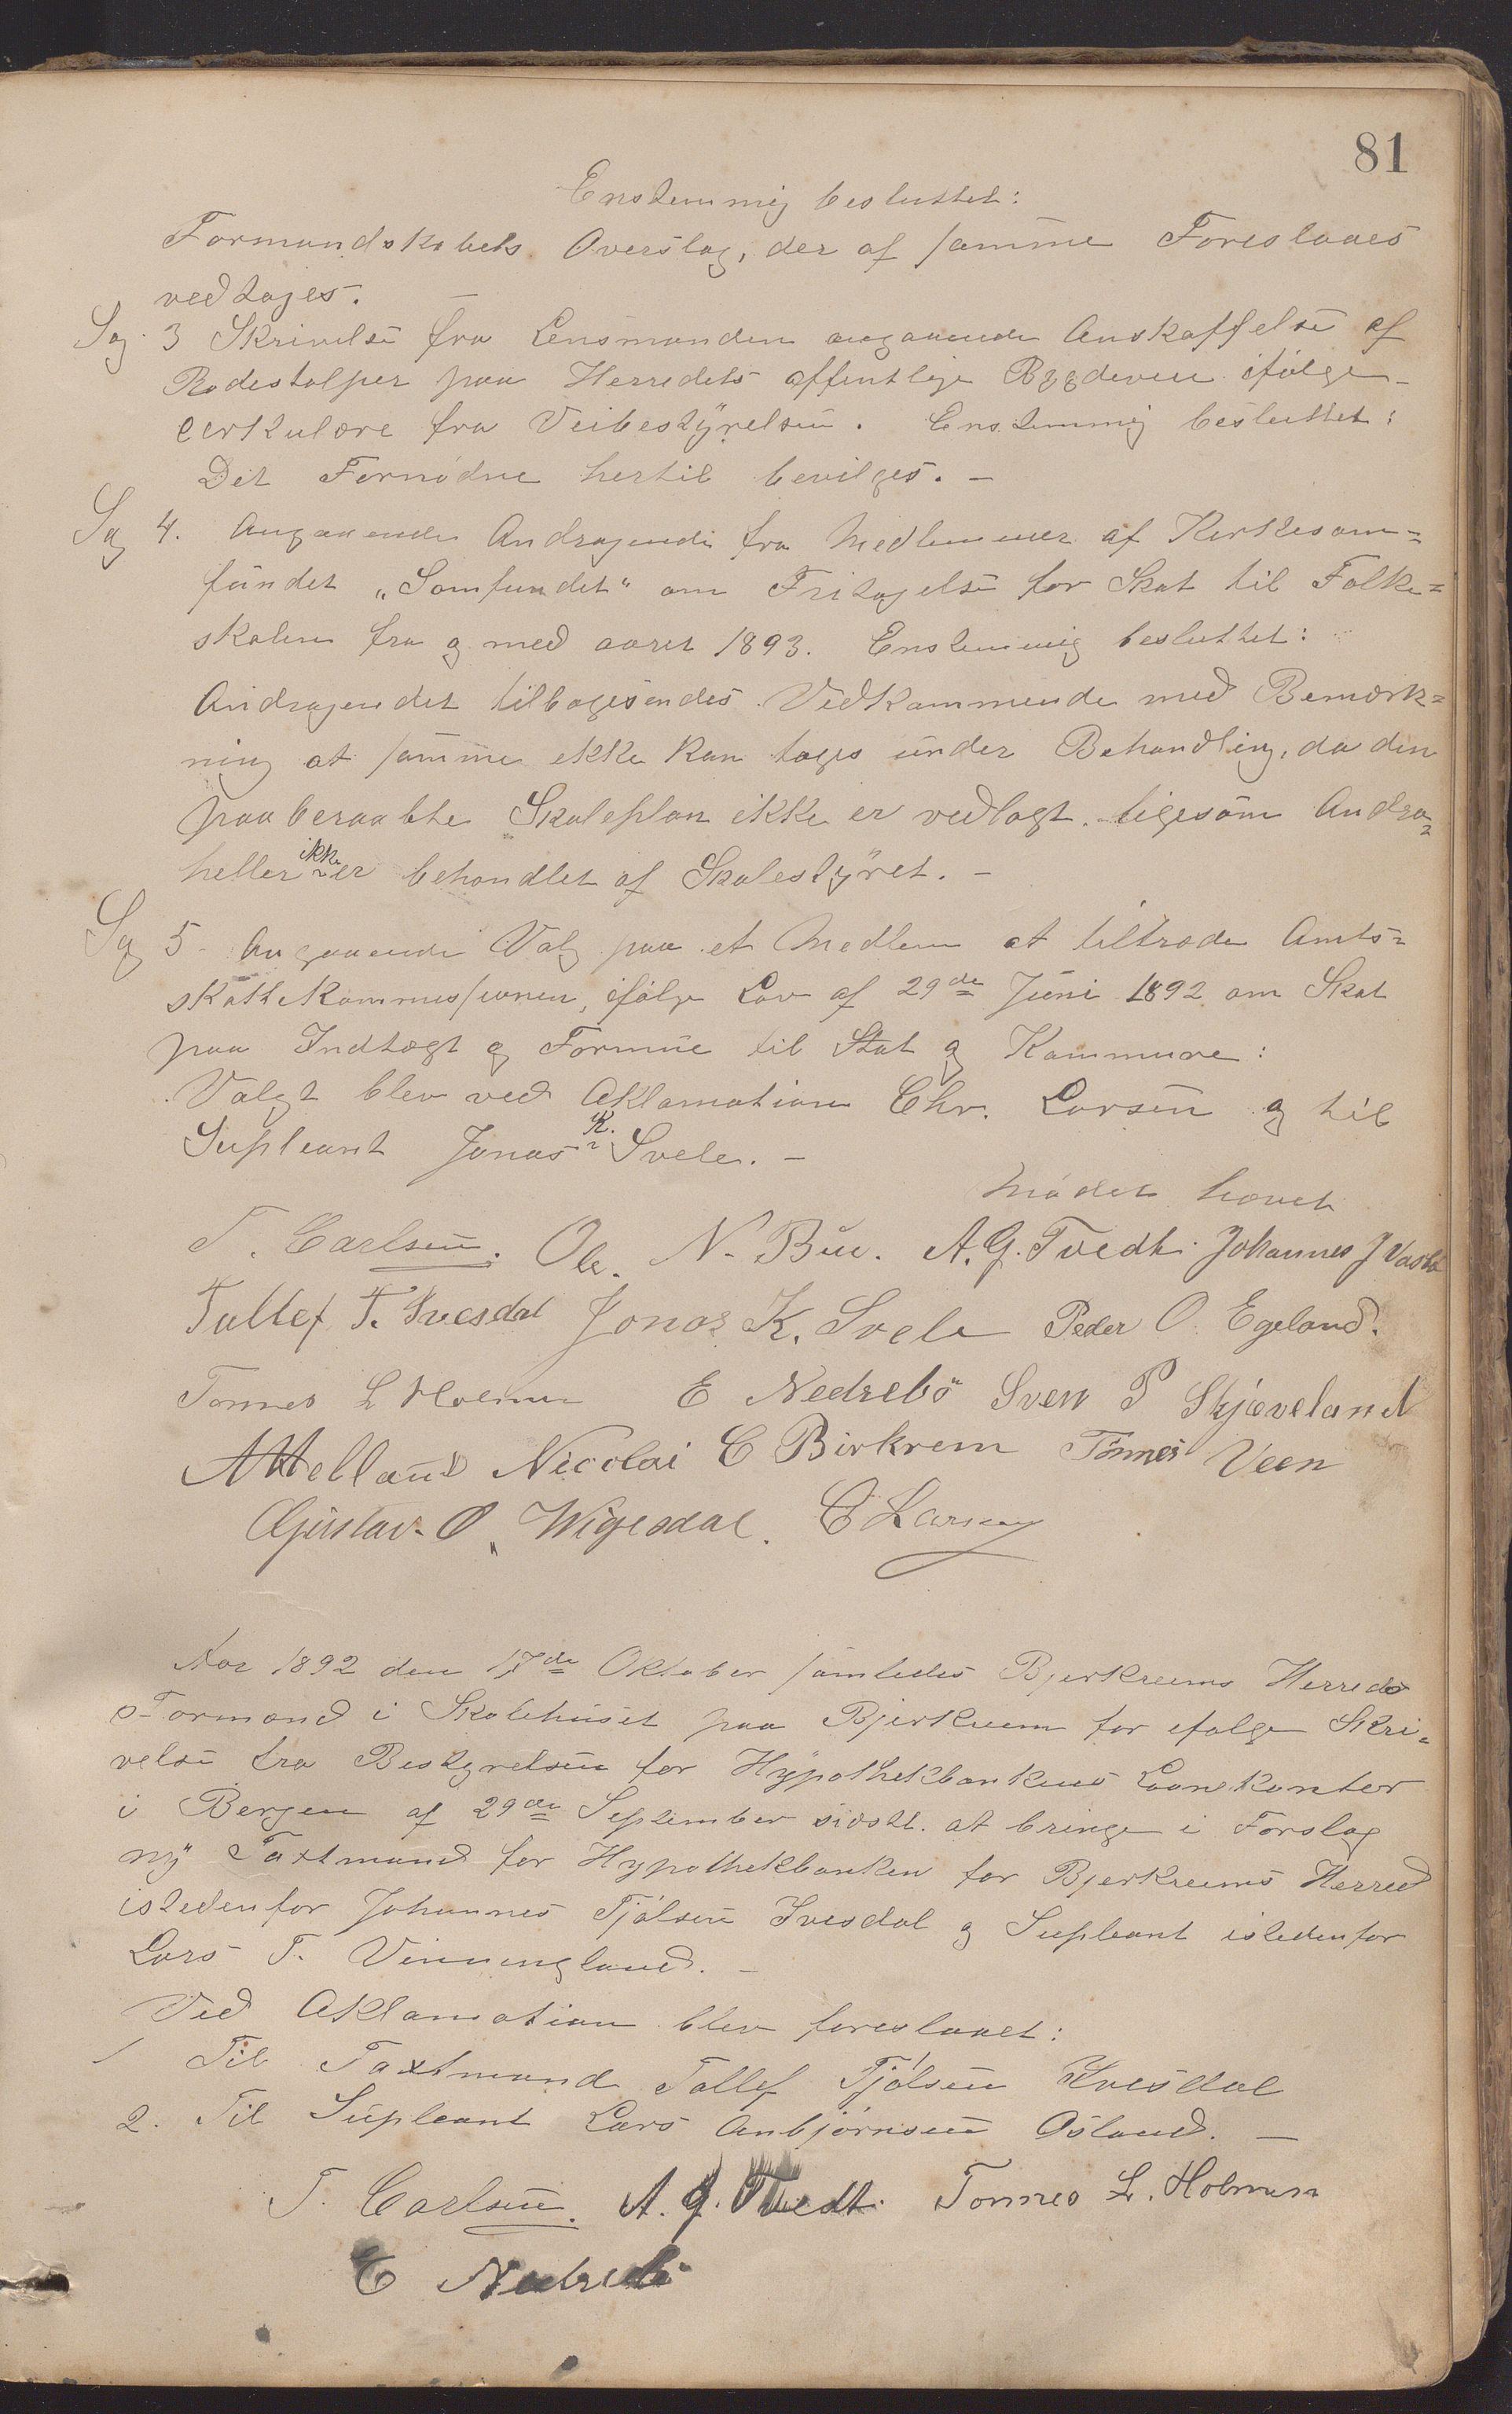 81
Enstemmig besluttet:
Formandskabets Overslag, der af samme Foreslaaes
vedtages.
Sag 3 Skrivelse fra Lensmanden angaaende Anskaffelse af
Rodestolper paa Herredets offentlige Bygdeveie ifølge
Cerkulære fra Veibestyrelsen. Enstemmig besluttet:
Det Fornødne hertil bevilges. -
Sag 4. Angaaende Andragende fra Medlemmer af Kirkesam=
fundet „Samfundet" om Fritagelse for Skat til Folke=
skolen fra og med aaret 1893. Enstemmig besluttet:
Andragendet tilbagesendes Vedkommende med Bemærk=
ning at samme ikke kan tages under Behandling, da den
paaberaabte Skoleplan ikke er vedlagt. ligesom Andra=
heller ikke er behandlet af Skolestyret. -
Sag 5 - Angaaende Valg paa et Medlem at tiltræde Amts=
skattekommissionen, ifølge Lov af 29de Juni 1892 om Skat
paa Indtægt og Formue til Stat og Kommune:
Valgt blev ved Aklamation Chr. Larsen og til
Supleant Jonas K. Svele. -
Mødet hævet
T. Carlsen. Ole. N. Bue. A. G. Tvedt. Johannes J Vasbø
Tollef T. Ivesdal Jonas K. Svele Peder O. Egeland.
Tønnes L Holmen E Nedrebö Sven P Skjæveland
A Helland Nicolai C Birkrem Tönnes Veen
Gustav. O. Wigesdal. C Larsen
Aar 1892 den 17de Oktober samledes Bjerkreims Herreds
Formand i Skolehuset paa Bjerkreim for ifølge Skri=
velse fra Bestyrelsen for Hypothekbankens Laanekontor
i Bergen af 29de September sidstl. at bringe i Forslag
ny Taxtmand for Hypothekbanken for Bjerkreims Herred
istedenfor Johannes Tjølsen Ivesdal og Supleant istedenfor
Lars T. Vinningland. -
Ved Aklamation blev foreslaaet:
1 Til Taxtmand Tollef Tjølsen Ivesdal
2. Til Supleant Lars Anbjørnsen Øsland. -
T. Carlsen. A. G. Tvedt. Tønnes L. Holmen
E Nedrebö